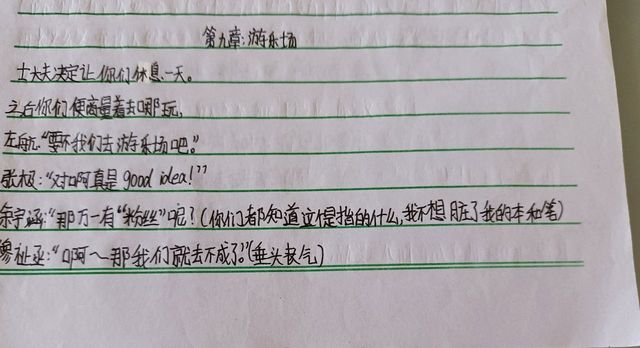 第九章:游乐场
士大夫决定让你们休息一天。
之后你们便商量着去哪玩,
左航:“要不我们去游乐场吧。”
张极:“对啊真是good idea!”
余宇涵:“那万一有“粉丝”呢?(你们都知道这是指的什么,我不想脏了我的本和笔)
廖祉丞:“啊~那我们就去不成了”(垂头丧气)